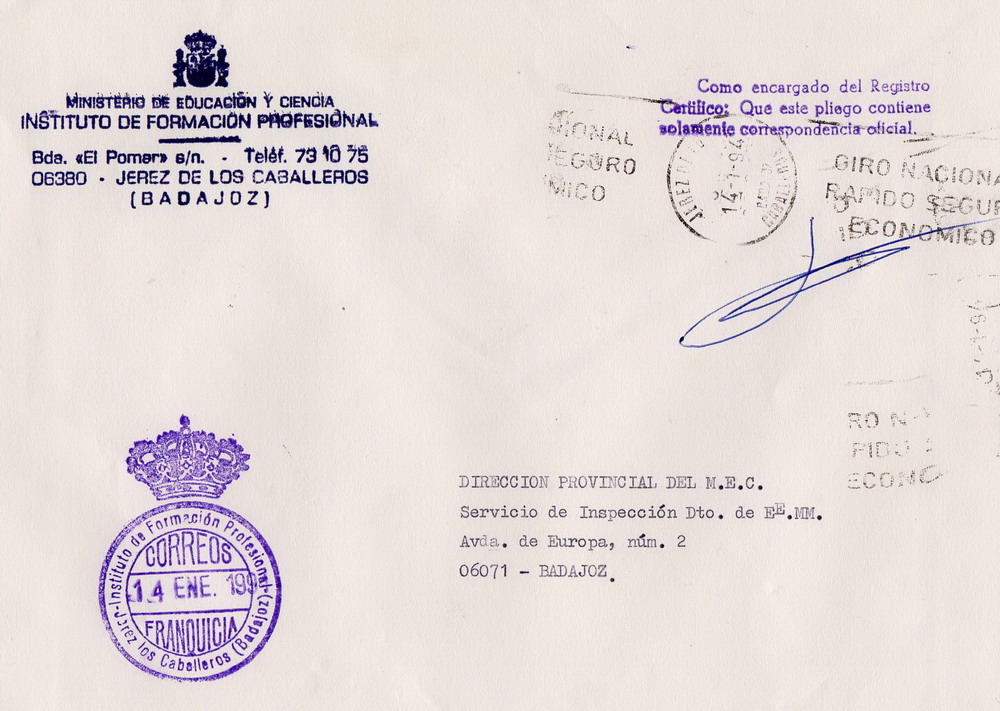 MINISTERIO DE EDUCACIÓN Y CIENCIA
INSTITUTO DE FORMACIÓN PROFESIONAL
Bda. «El Pomar» s/n. - Teléf. 73 10 75
06380 - JEREZ DE LOS CABALLEROS
(BADAJOZ)
Como encargado del Registro
Certifico: Que este pliego contiene
solamente correspondencia oficial.
IONAL
EGURO
MICO
JEREZ DE
14-1-94
CABALL
GIRO NACIONA
RAPIDO SEGUR
ECONOMICO
RO N
PIDO
ECONO
DIRECCION PROVINCIAL DEL M.E.C.
Servicio de Inspección Dto. de EE.MM.
Avda. de Europa, núm. 2
06071 - BADAJOZ.
Instituto de Formación Profesional
CORREOS
14 ENE. 199
FRANQUICIA
Jerez los Caballeros (Badajoz)